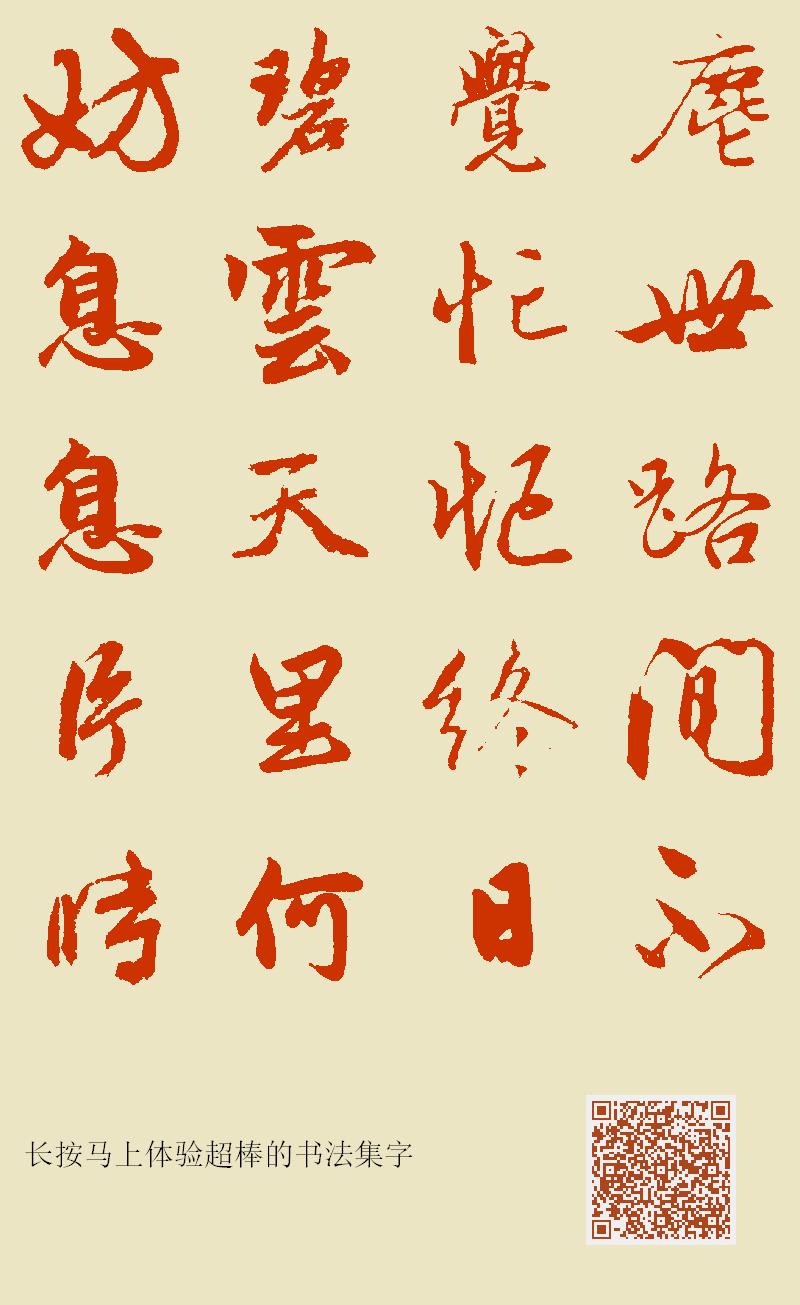 塵世路間不
覺忙忙終日
碧雲天里何
妨息息片時
长按马上体验超棒的书法集字